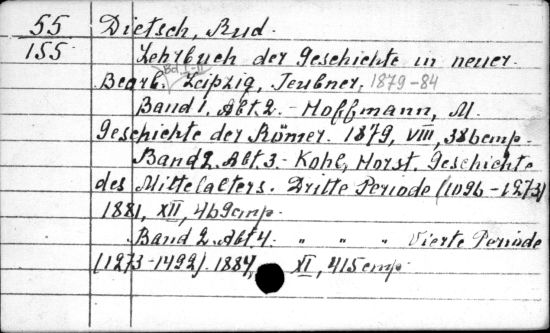 55 Dietsch, Rud.
155 Lehrbuch der Geschichte in neuer
Bearb. Bd. I-II Leipzig, Teubner, 1879-84
Band 1, Abt. 2. - Hoffmann, M.
Geschichte der Römer. 1879, VIII, 386 стр.
Band 2. Abt. 3 - Kohl, Horst. Geschichte
des Mittelalters. Dritte Periode (1096-1273)
1881, XII, 469 стр.
Band 2. Abt. 4. " " " Vierte Periode
(1273-1492). 1884, XI, 415 стр.